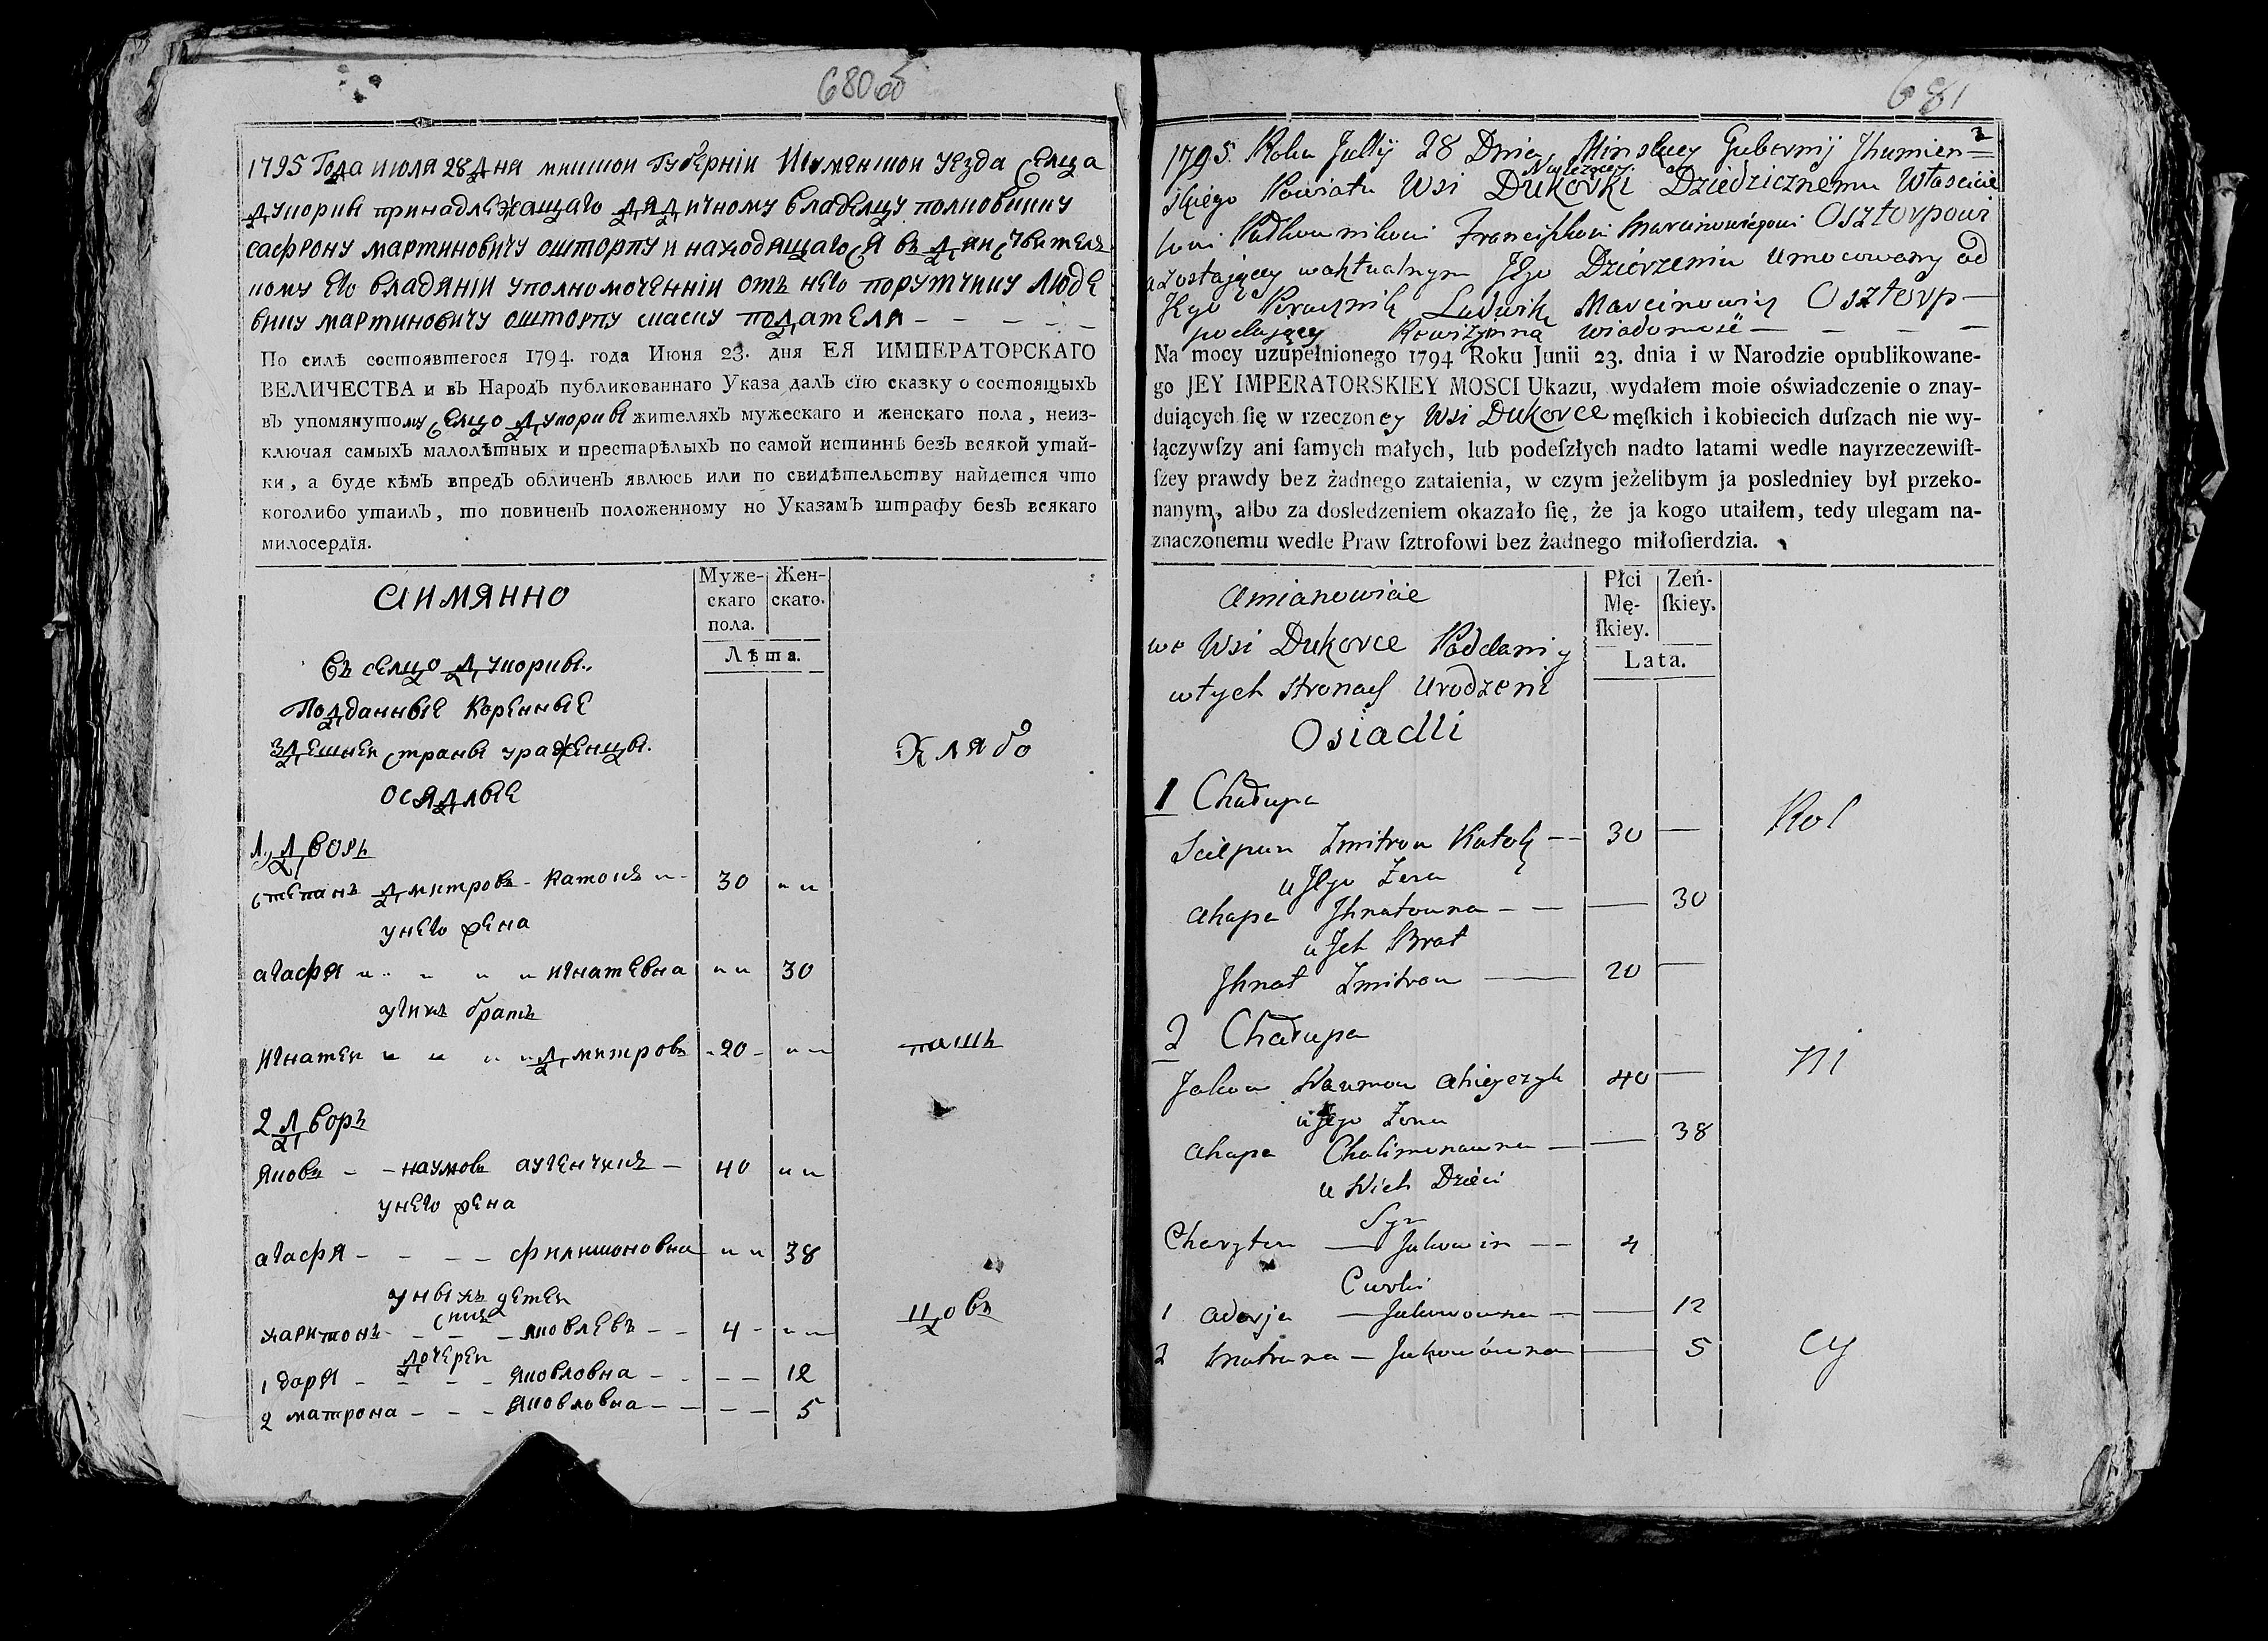 680об
1795 Года июля 28 дня минской губернїи Игуменской уезда селца
дукорки принадлежащаго дядичному владелцу полковнику
сафрону мартиновичу ошторпу и находящагося въ дяиствител
ному его владянїи уполномоченнїи отъ него порутчику люде
вику мартиновичу ошторпу скаску подателя – – – – –
По силѣ состоявшегося 1794. года Июня 23. дня ЕЯ ИМПЕРАТОРСКАГО
ВЕЛИЧЕСТВА и въ Народъ публикованнаго Указа далъ сїю сказку о состоящыхъ
въ упомянутому селцо дукорки жителяхъ мужескаго и женскаго пола, неиз-
ключая самыхъ малолѣтныхъ и престарѣлыхъ по самой истиннѣ безъ всякой утай-
ки, а буде кѣмъ впредь обличенъ явлюсь или по свидѣтельству найдется что
коголибо утаилъ, то повиненъ положенному по Указамъ штрафу безъ всякаго
милосердїя.
аимянно
Муже- скаго пола.
Жен- скаго.
Лѣта.
Въ селцо дукорки.
Подданные коренные
здешнеи страны ураженцы.
осядлые
1 дворъ
степанъ дмитровъ катокъ 30
у него жена
агафя игнатевна 30
у нихъ братъ
игнатеи дмитровъ 20
2 дворъ
яковъ – наумовъ аугенчикъ – 40
у него жена
агафя – – – – филимоновна 38
у ныхъ детеи
сынъ
харитонъ – – – яковлевъ – – 4
дочереи
1 даря – – – – яковловна – – 12
2 матрона – – – яковловна – – 5
681
1795. Roku Julij 28 Dnia Minskiey Gubernij Jhumien=
skiego Powiatu Wsi Dukorki Należącey Dziedzicznemu Właścicie
lowi Podkownikowi Franciszkowi Marcinowiczowi Osztorpowi
a zostaiącey w aktualnym Jego Dzierżeniu umocowany od
Jego Porucznik Ludwik Marcinowicz Osztorp –
podaiący Rewizyiną wiadomość – – – –
Na mocy uzupełnionego 1794 Roku Junii 23. dnia i w Narodzie opublikowane-
go JEY IMPERATORSKIEY MOSCI Ukazu, wydałem moie oświadczenie o znay-
duiących ſię w rzeczoney Wsi Dukorce męſkich i kobiecich duſzach nie wy-
łączywſzy ani ſamych małych, lub podeſzłych nadto latami wedle nayrzeczewiſt-
ſzey prawdy bez żadnego zataienia, w czym jeżelibym ja posledniey był przeko-
nanym, albo za dosledzeniem okazało ſię, że ja kogo utaiłem, tedy ulegam na-
znaczonemu wedle Praw ſztrofowi bez żadnego miłoſierdzia.
Amianowicie
Płci Mę- ſkiey.
Zeń- ſkiey.
Lata.
we Wsi Dukorce Poddani
w tych stronach urodzeni
Osiadli
1 Chałupa
Sciepan Zmitrow Katok –– 30
u Jego Żona
Ahapa Jhnatowna – – 30
u Jch Brat
Jhnat Zmitrow 20
2 Chałupa
Jakow Naumow 40
u Jego Żona
Ahapa Chalimonowna – 38
u Nich Dzieci
Syn
Charyton Jakowin –– 4
Curki
1 Adarja – Jakowowna – 12
2 Matruna – Jakowówna 5